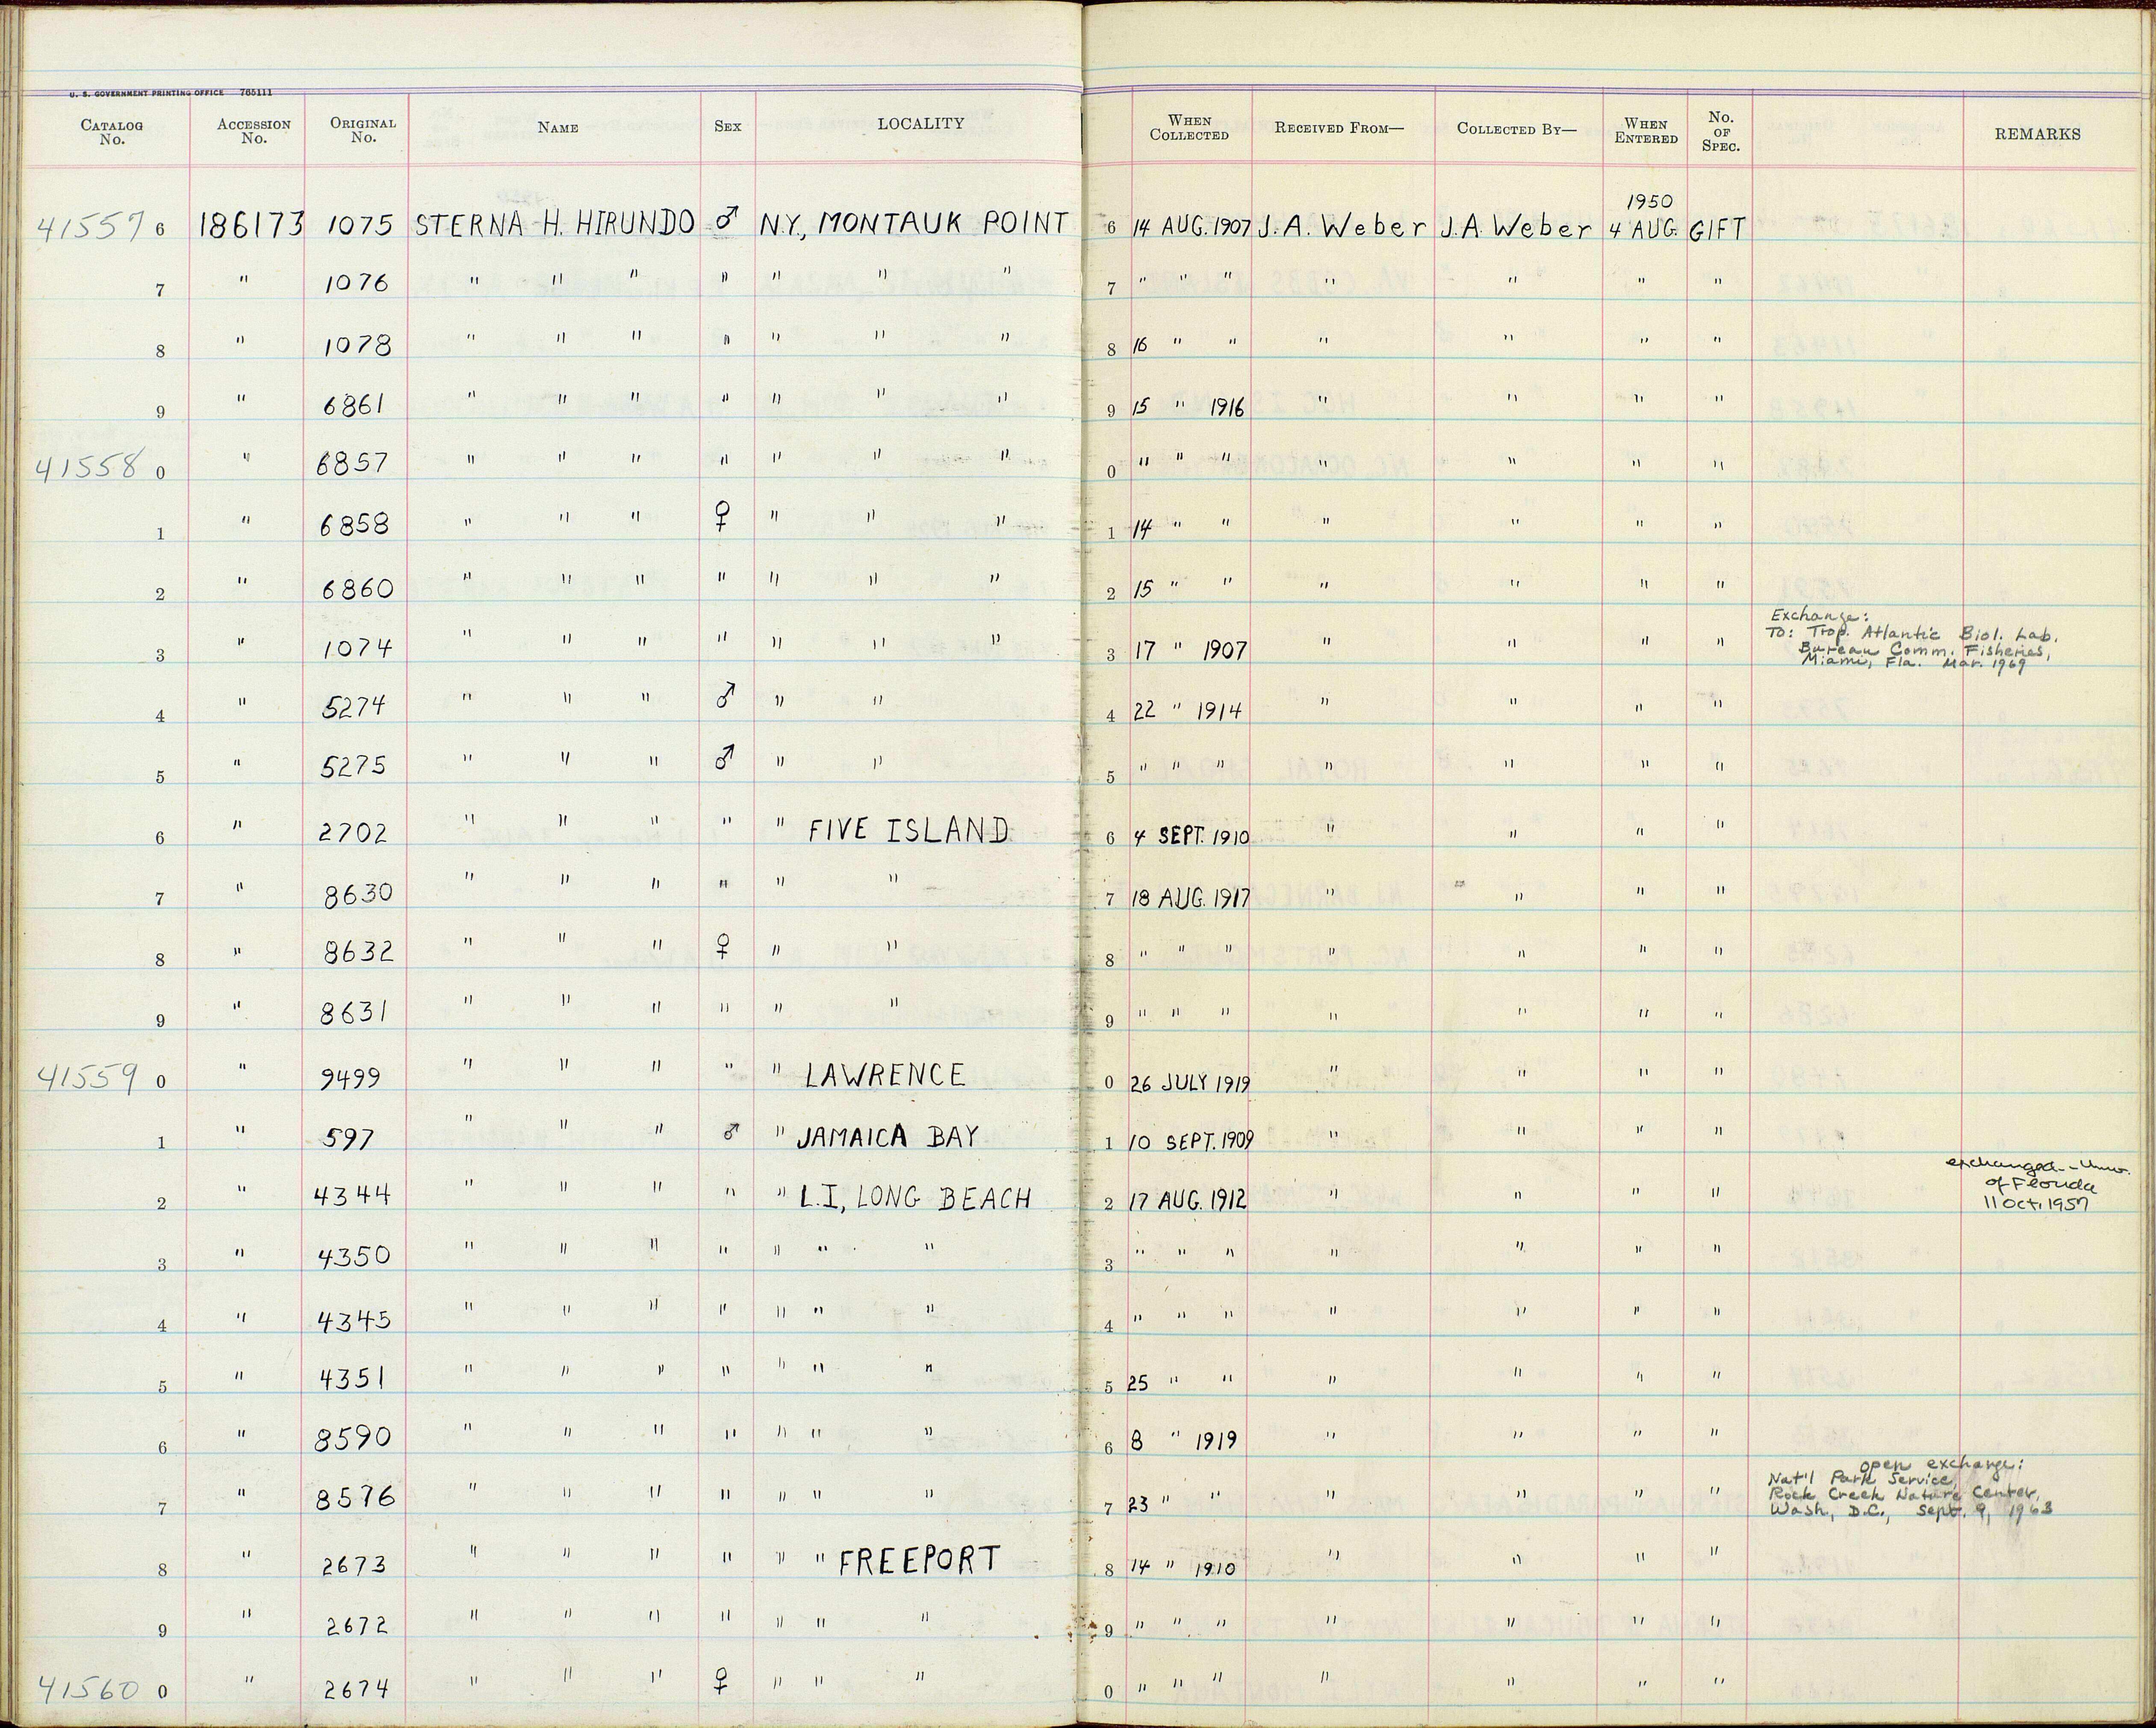 U. S. GOVERNMENT PRINTING OFFICE 765111
CATALOG No. ACCESSION No. ORIGINAL No. NAME SEX LOCALITY WHEN COLLECTED RECEIVED FROM— COLLECTED BY— WHEN ENTERED No. OF SPEC. REMARKS
41557 6 186173 1075 STERNA H. HIRUNDO ♂ N.Y., MONTAUK POINT 6 14 AUG. 1907 J.A. Weber J.A. Weber 1950 4 AUG. GIFT
7 " 1076 " " " " " " " 7 " " " " " " "
8 " 1078 " " " " " " " 8 16 " " " " " "
9 " 6861 " " " " " " " 9 15 " 1916 " " " "
41558 0 " 6857 " " " " " " " 0 " " " " " " "
1 " 6858 " " " ♀ " " " 1 14 " " " " " "
2 " 6860 " " " " " " " 2 15 " " " " " "
3 " 1074 " " " " " " " 3 17 " 1907 " " " " Exchange:
To: Trop. Atlantic Biol. Lab.
Bureau Comm. Fisheries,
Miami, Fla. Mar. 1969
4 " 5274 " " " ♂ " " 4 22 " 1914 " " " "
5 " 5275 " " " ♂ " " 5 " " " " " " "
6 " 2702 " " " " " FIVE ISLAND 6 4 SEPT. 1910 " " " "
7 " 8630 " " " " " " 7 18 AUG. 1917 " " " "
8 " 8632 " " " ♀ " " 8 " " " " " " "
9 " 8631 " " " " " " 9 " " " " " " "
41559 0 " 9499 " " " " " LAWRENCE 0 26 JULY 1919 " " " "
1 " 597 " " " ♂ " JAMAICA BAY 1 10 SEPT. 1909 " " " "
2 " 4344 " " " " " L.I., LONG BEACH 2 17 AUG. 1912 " " " " exchanged - Univ.
of Florida
11 Oct. 1957
3 " 4350 " " " " " " " 3 " " " " " " "
4 " 4345 " " " " " " " 4 " " " " " " "
5 " 4351 " " " " " " " 5 25 " " " " " "
6 " 8590 " " " " " " " 6 8 " 1919 " " " "
7 " 8576 " " " " " " " 7 23 " " " " " " open exchange:
Nat'l Park Service,
Rock Creek Nature Center,
Wash, D.C., Sept. 9, 1963
8 " 2673 " " " " " " FREEPORT 8 14 " 1910 " " " "
9 " 2672 " " " " " " " 9 " " " " " " "
41560 0 " 2674 " " " ♀ " " " 0 " " " " " " "